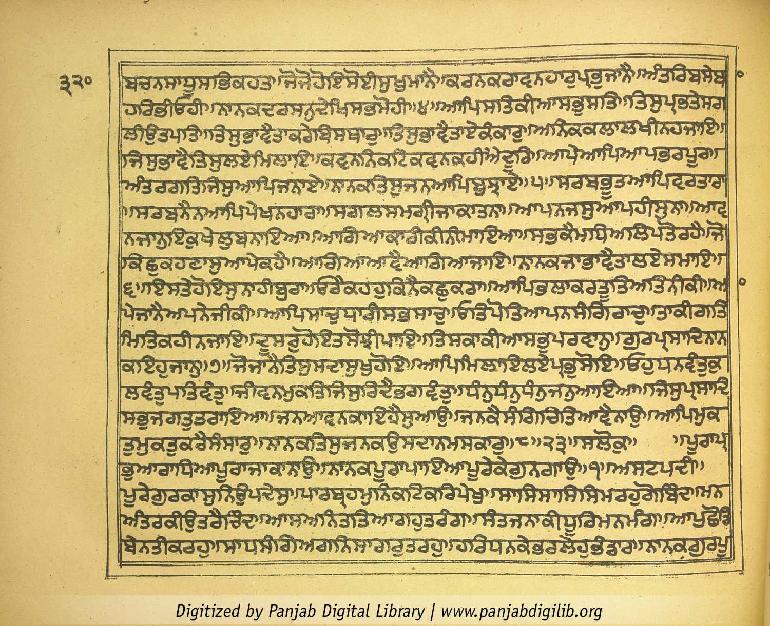 ੩੨੦
ਬਚਨਸਾਧੂਸਭਿਕਹਤ॥ਜੋਜੋਹੋਇਸੋਈਸੁਖੁਮਾਨੈ॥ਕਰਨਕਰਾਵਨਹਾਰੁਪ੍ਰਭੁਜਾਨੈ॥ਅੰਤਰਿਬਸੇਬ
ਹਰਿਭੀਓਹੀ॥ਨਾਨਕਦਰਸਨੁਦੇਖਿਸਭਮੋਹੀ॥੪॥ਆਪਿਸਤਿਕੀਆਸਭੁਸਤਿ॥ਤਿਸੁਪ੍ਰਭਤੇਸਗ
ਲੀਉਤਪਤਿ॥ਤਿਸੁਭਾਵੈਤਾਕਰੇਬਿਸਥਾਰੁ॥ਤਿਸੁਭਾਵੈਤਾਏਕੰਕਾਰੁ॥ਅਨਿਕਕਲਾਲਖੀਨਹਜਾਇ॥
ਜਿਸੁਭਾਵੈਤਿਸੁਲਏਮਿਲਾਇ॥ਕਵਨਨਿਕਟਿਕਵਨਕਹੀਐਦੂਰਿ॥ਆਪੇਆਪਿਆਪਭਰਪੂਰਿ॥
ਅੰਤਰਗਤਿਜਿਸੁਆਪਿਜਨਾਏ॥ਨਾਨਕਤਿਸੁਜਨਆਪਿਬੁਝਾਏ॥੫॥ਸਰਬਭੂਤਆਪਿਵਰਤਾਰਾ
॥ਸਰਬਨੈਨਆਪਿਪੇਖਨਹਾਰਾ॥ਸਗਲਸਮਗ੍ਰੀਜਾਕਾਤਨਾ॥ਆਪਨਜਸੁਆਪਹੀਸੁਨਾ॥ਆਵ
ਨਜਾਨੁਇਕੁਖੇਲੁਬਨਾਇਆ॥ਆਗਿਆਕਾਰੀਕੀਨੀਮਾਇਆ॥ਸਭਕੈਮਧਿਅਲਿਪਤੋਰਹੈ॥ਜੋ
ਕਿਛੁਕਹਣਾਸੁਆਪੇਕਹੈ॥ਆਗਿਆਆਵੈਆਗਿਆਜਾਇ॥ਨਾਨਕਜਾਭਾਵੈਤਾਲਏਸਮਾਇ॥
੬॥ਇਸਤੇਹੋਇਸੁਨਾਹੀਬੁਰਾ॥ਓਰੈਕਹਹੁਕਿਨੈਕਛੁਕਰਾ॥ਆਪਿਭਲਾਕਰਤੂਤਿਅਤਿਨੀਕੀ॥ਆ
ਪੇਜਾਨੈਅਪਨੇਜੀਕੀ॥ਆਪਿਸਾਚੁਧਾਰੀਸਭਸਾਚੁ॥ਓਤਿਪੋਤਿਆਪਨਸੰਗਿਰਾਚੁ॥ਤਾਕੀਗਤਿ
ਮਿਤਿਕਹੀਨਜਾਇ॥ਦੂਸਰਹੋਇਤਸੋਝੀਪਾਇ॥ਤਿਸਕਾਕੀਆਸਭੁਪਰਵਾਨੁ॥ਗੁਰਪ੍ਰਸਾਦਿਨਾਨ
ਕਇਹੁਜਾਨੁ॥੭॥ਜੋਜਾਨੈਤਿਸੁਸਦਾਸੁਖੁਹੋਇ॥ਆਪਿਮਿਲਾਇਲਏਪ੍ਰਭੁਸੋਇ॥ਓਹੁਧਨਵੰਤੁਕੁ
ਲਵੰਤੁਪਤਿਵੰਤੁ॥ਜੀਵਨਮੁਕਤਿਜਿਸੁਰਿਦੈਭਗਵੰਤੁ॥ਧੰਨੁਧੰਨੁਧੰਨੁਜਨੁਆਇਆ॥ਜਿਸੁਪ੍ਰਸਾਦਿ
ਸਭੁਜਗਤੁਤਰਾਇਆ॥ਜਨਆਵਨਕਾਇਹੈਸੁਆਉ॥ਜਨਕੈਸੰਗਿਚਿਤਿਆਵੈਨਾਉ॥ਆਪਿਮੁਕ
ਤੁਮੁਕਤੁਕਰੈਸੰਸਾਰੁ॥ਨਾਨਕਤਿਸੁਜਨਕਉਸਦਾਨਮਸਕਾਰੁ॥੮॥੨੩॥ਸਲੋਕੁ॥ ॥ਪੂਰਾਪ੍ਰ
ਭੁਆਰਾਧਿਆਪੂਰਾਜਾਕਾਨਾਉ॥ਨਾਨਕਪੂਰਾਪਾਇਆਪੂਰੇਕੇਗੁਨਗਾਉ॥੧॥ਅਸਟਪਦੀ॥
ਪੂਰੇਗੁਰਕਾਸੁਨਿਉਪਦੇਸੁ॥ਪਾਰਬ੍ਰਹਮੁਨਿਕਟਿਕਰਿਪੇਖੁ॥ਸਾਸਿਸਾਸਿਸਿਮਰਹੁਗੋਬਿੰਦ॥ਮਨ
ਅੰਤਰਕੀਉਤਰੈਚਿੰਦ॥ਆਸਅਨਿਤਤਿਆਗਹੁਤਰੰਗ॥ਸੰਤਜਨਾਕੀਧੂਰਿਮਨਮੰਗ॥ਆਪੁਛੋਡਿ
ਬੇਨਤੀਕਰਹੁ॥ਸਾਧਸੰਗਿਅਗਨਿਸਾਗਰੁਤਰਹੁ॥ਹਰਿਧਨਕੇਭਰਲੇਹੁਭੰਡਾਰ॥ਨਾਨਕਗੁਰਪੂ
Digitized by Panjab Digital Library | www.panjabdigilib.org